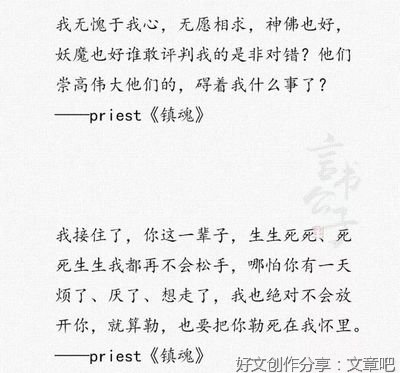 我无愧于我心，无愿相求，神佛也好，
妖魔也好谁敢评判我的是非对错？他们
崇高伟大他们的，碍着我什么事了？
——priest《镇魂》
言书公子
我接住了，你这一辈子，生生死死、死
死生生我都再不会松手，哪怕你有一天
烦了、厌了、想走了，我也绝对不会放
开你，就算勒，也要把你勒死在我怀里。
——priest《镇魂》
好文创作分享：文章吧